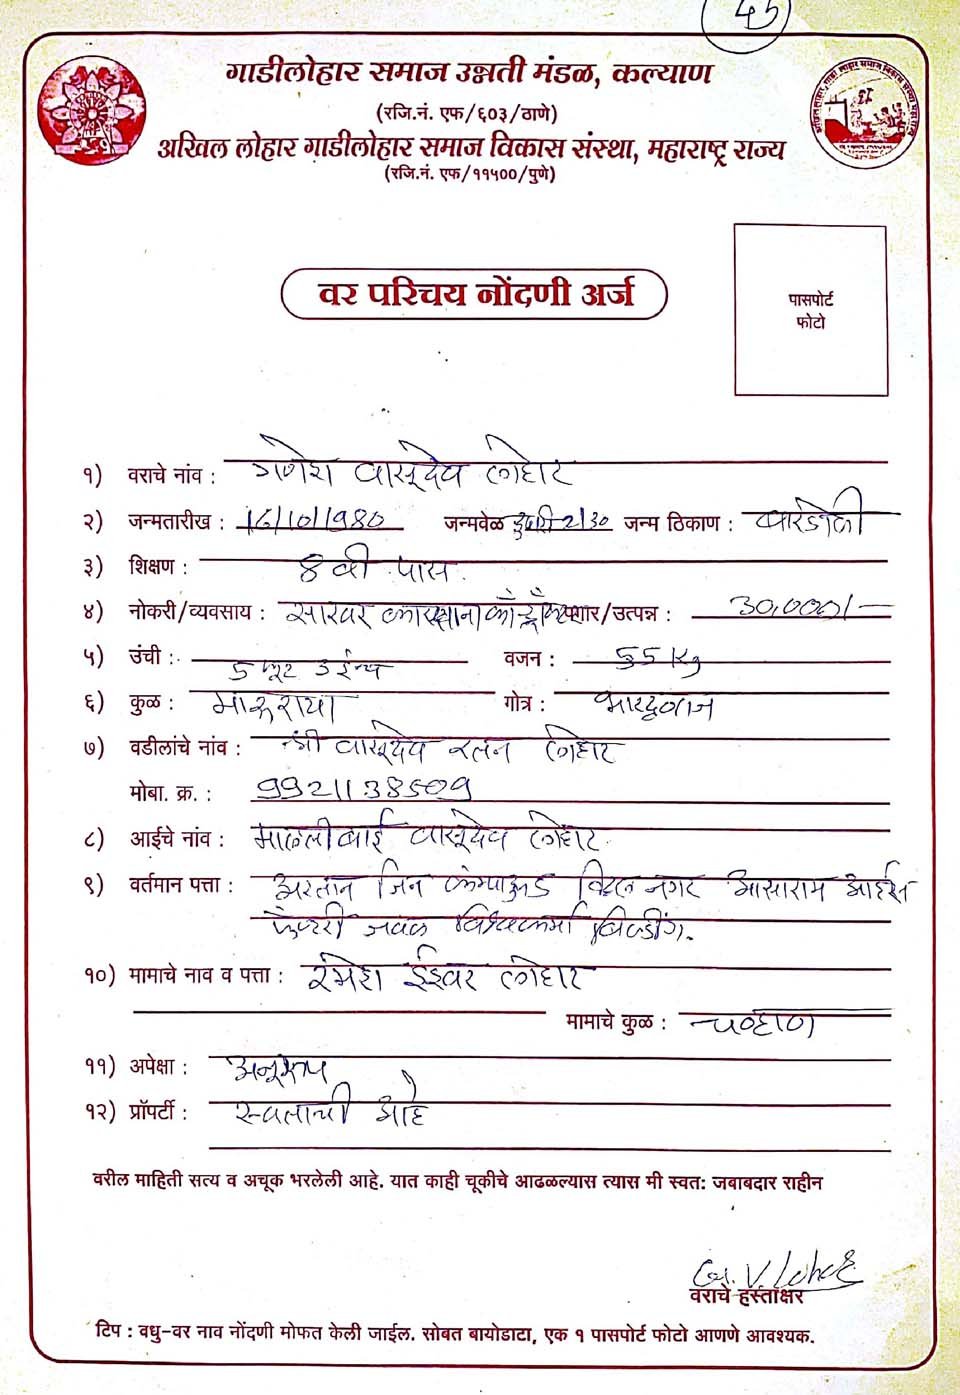 45
गाडीलोहार समाज उन्नती मंडळ, कल्याण
(रजि.नं. एफ/६०३/ठाणे)
अखिल लोहार गाडीलोहार समाज विकास संस्था, महाराष्ट्र राज्य
(रजि.नं. एफ/११५००/पुणे)
वर परिचय नोंदणी अर्ज
पासपोर्ट
फोटो
१) वराचे नांव : गणेश वासुदेव लोहार
२) जन्मतारीख : 16/10/1980 जन्मवेळ दुपारी 2/30 जन्म ठिकाण : बारडोली
३) शिक्षण : 8 वी पास
४) नोकरी/व्यवसाय : साखर कारखाना पगार/उत्पन्न : 30,000/-
५) उंची : 5 फूट 3 ईन्च वजन : 55 Kg
६) कुळ : गोत्र : भारद्वाज
७) वडीलांचे नांव : श्री वासुदेव रतन लोहार
मोबा. क्र. : 9921138509
८) आईचे नांव : वासुदेव लोहार
९) वर्तमान पत्ता : जिन कंम्पाऊंड विठ्ठल नगर आसाराम आईस
फॅक्टरी जवळ विश्वकर्मा बिल्डींग.
१०) मामाचे नाव व पत्ता : रमेश ईश्वर लोहार
मामाचे कुळ : चव्हाण
११) अपेक्षा : अनुरूप
१२) प्रॉपर्टी : स्वताची आहे
वरील माहिती सत्य व अचूक भरलेली आहे. यात काही चूकीचे आढळल्यास त्यास मी स्वत: जबाबदार राहीन
G. V. Lohar
वराचे हस्ताक्षर
टिप : वधु-वर नाव नोंदणी मोफत केली जाईल. सोबत बायोडाटा, एक १ पासपोर्ट फोटो आणणे आवश्यक.